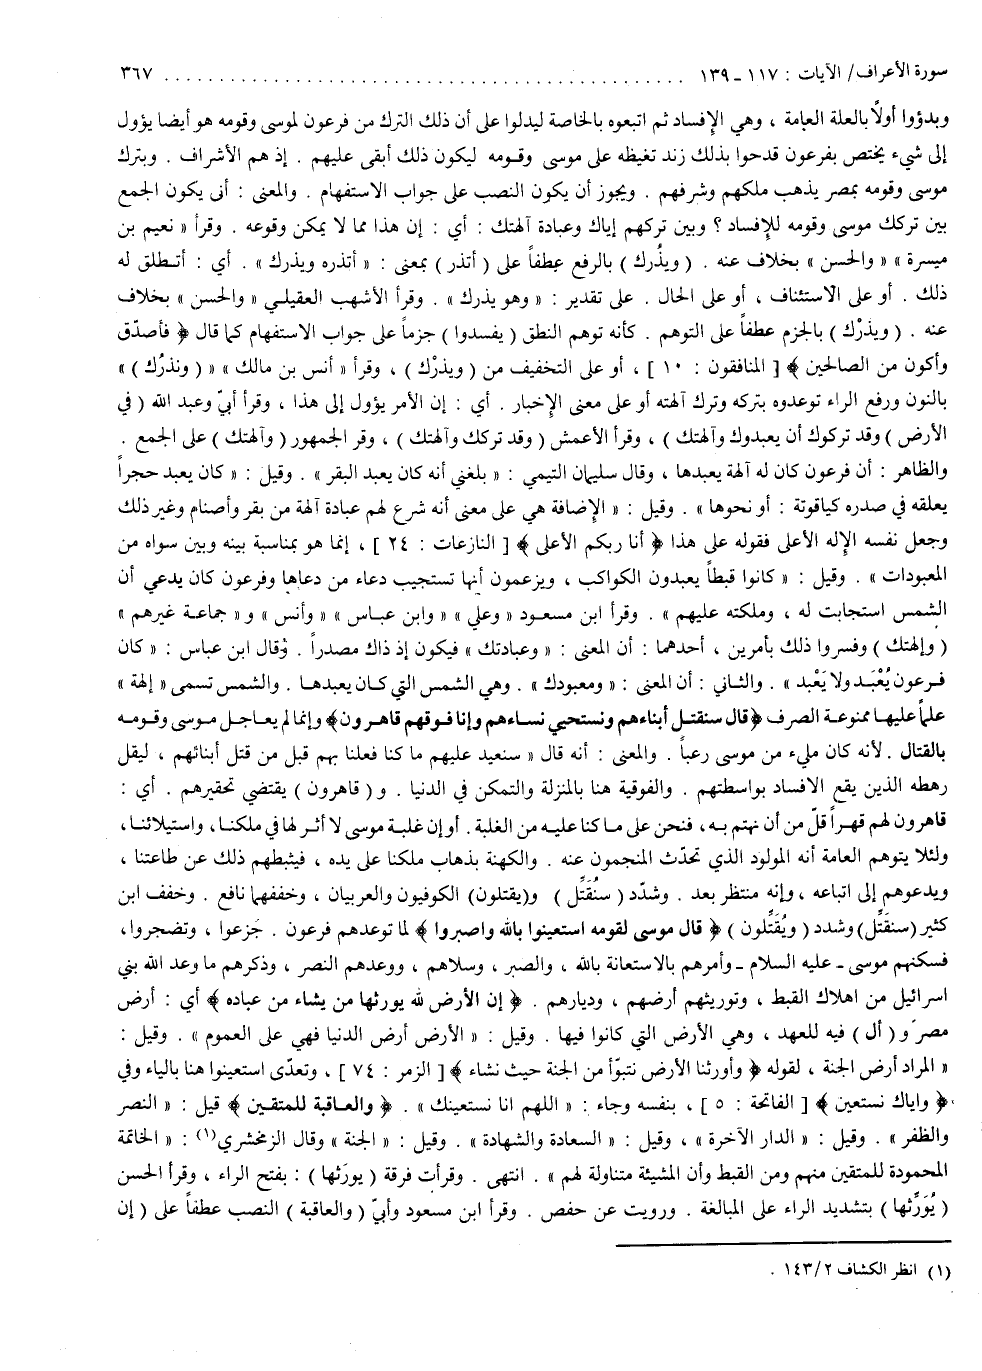 سورة الأعراف/ الآيات : ١١٧ ـ ١٣٩ ................................................ ٣٦٧
وبدؤوا أولاً بالعلة العامة ، وهي الإفساد ثم اتبعوه بالخاصة ليدلوا على أن ذلك الترك من فرعون لموسى وقومه هو أيضا يؤول
إلى شيء يختص بفرعون قدحوا بذلك زند تغيظه على موسى وقومه ليكون ذلك أبقى عليهم . إذ هم الأشراف . وبترك
موسى وقومه بمصر يذهب ملكهم وشرفهم . ويجوز أن يكون النصب على جواب الاستفهام . والمعنى : أنى يكون الجمع
بين تركك موسى وقومه للإفساد ؟ وبين تركهم إياك وعبادة آلهتك : أي : إن هذا مما لا يمكن وقوعه . وقرأ « نعيم بن
ميسرة » « والحسن » بخلاف عنه . ( ويذُرك ) بالرفع عطفاً على ( أتذر ) بمعنى : « أتذره ويذرك » . أي : أتطلق له
ذلك . أو على الاستئناف ، أو على الحال . على تقدير : « وهو يذرك » . وقرأ الأشهب العقيلي « والحسن » بخلاف
عنه . ( ويذرْك ) بالجزم عطفاً على التوهم . كأنه توهم النطق ( يفسدوا ) جزماً على جواب الاستفهام كما قال ﴿ فأصدّق
وأكون من الصالحين ﴾ [ المنافقون : ١٠ ] ، أو على التخفيف من ( ويذرْك ) ، وقرأ « أنس بن مالك » « ( ونذرُك ) »
بالنون ورفع الراء توعدوه بتركه وترك آلهته أو على معنى الإخبار . أي : إن الأمر يؤول إلى هذا ، وقرأ أبيّ وعبد الله ( في
الأرض ) وقد تركوك أن يعبدوك وآلهتك ) ، وقرأ الأعمش ( وقد تركك وآلهتك ) ، وقر الجمهور ( وآلهتك ) على الجمع .
والظاهر : أن فرعون كان له آلهة يعبدها ، وقال سليمان التيمي : « بلغني أنه كان يعبد البقر » . وقيل : « كان يعبد حجراً
يعلقه في صدره كياقوتة : أو نحوها » . وقيل : « الإضافة هي على معنى أنه شرع لهم عبادة آلهة من بقر وأصنام وغير ذلك
وجعل نفسه الإله الأعلى فقوله على هذا ﴿ أنا ربكم الأعلى ﴾ [ النازعات : ٢٤ ] ، إنما هو بمناسبة بينه وبين سواه من
المعبودات » . وقيل : « كانوا قبطاً يعبدون الكواكب ، ويزعمون أنها تستجيب دعاء من دعاها وفرعون كان يدعي أن
الشمس استجابت له ، وملكته عليهم » . وقرأ ابن مسعود « وعلي » « وابن عباس » « وأنس » و « جماعة غيرهم »
( وإلهتك ) وفسروا ذلك بأمرين ، أحدهما : أن المعنى : « وعبادتك » فيكون إذ ذاك مصدراً . وُقال ابن عباس : « كان
فرعون يُعْبَد ولا يَعْبد » . والثاني : أن المعنى : « ومعبودك » . وهي الشمس التي كان يعبدها . والشمس تسمى « إلهة »
علماً عليها ممنوعة الصرف ﴿قال سنقتل أبناءهم ونستحيي نساءهم وإنا فوقهم قاهرون﴾ وإنما لم يعاجل موسى وقومه
بالقتال . لأنه كان مليء من موسى رعباً . والمعنى : أنه قال « سنعيد عليهم ما كنا فعلنا بهم قبل من قتل أبنائهم ، ليقل
رهطه الذين يقع الافساد بواسطتهم . والفوقية هنا بالمنزلة والتمكن في الدنيا . و ( قاهرون ) يقتضي تحقيرهم . أي :
قاهرون لهم قهراً قلّ من أن نهتم به ، فنحن على ما كنا عليه من الغلبة . أو إن غلبة موسى لا أثر لها في ملكنا ، واستيلائنا ،
ولئلا يتوهم العامة أنه المولود الذي تحدّث المنجمون عنه . والكهنة بذهاب ملكنا على يده ، فيثبطهم ذلك عن طاعتنا ،
ويدعوهم إلى اتباعه ، وإنه منتظر بعد . وشدّد ( سنُقَتِّل ) و(يقتلون) الكوفيون والعربيان ، وخففهما نافع . وخفف ابن
كثير (سنقَتِّل) وشدد ( ويُقَتِّلون ) ﴿ قال موسى لقومه استعينوا بالله واصبروا ﴾ لما توعدهم فرعون . جَزعوا ، وتضجروا ،
فسكنهم موسى ـ عليه السلام ـ وأمرهم بالاستعانة بالله ، والصبر ، وسلاهم ، ووعدهم النصر ، وذكرهم ما وعد الله بني
اسرائيل من اهلاك القبط ، وتوريثهم أرضهم ، وديارهم . ﴿ إن الأرض لله يورثها من يشاء من عباده ﴾ أي : أرض
مصر و ( أل ) فيه للعهد ، وهي الأرض التي كانوا فيها . وقيل : « الأرض أرض الدنيا فهي على العموم » . وقيل :
« المراد أرض الجنة ، لقوله ﴿ وأورثنا الأرض نتبوّأ من الجنة حيث نشاء ﴾ [ الزمر : ٧٤ ] ، وتعدّى استعينوا هنا بالياء وفي
﴿ وإياك نستعين ﴾ [ الفاتحة : ٥ ] ، بنفسه وجاء : « اللهم انا نستعينك » . ﴿ والعاقبة للمتقين ﴾ قيل : « النصر
والظفر » . وقيل : « الدار الآخرة » ، وقيل : « السعادة والشهادة » . وقيل : « الجنة » وقال الزمخشري(١) : « الخاتمة
المحمودة للمتقين منهم ومن القبط وأن المشيئة متناولة لهم » . انتهى . وقرأت فرقة ( يورَثها ) : بفتح الراء ، وقرأ الحسن
( يُوَرِّثها ) بتشديد الراء على المبالغة . ورويت عن حفص . وقرأ ابن مسعود وأبيّ ( والعاقبة ) النصب عطفاً على ( إن
(١) انظر الكشاف ١٤٣/٢ .